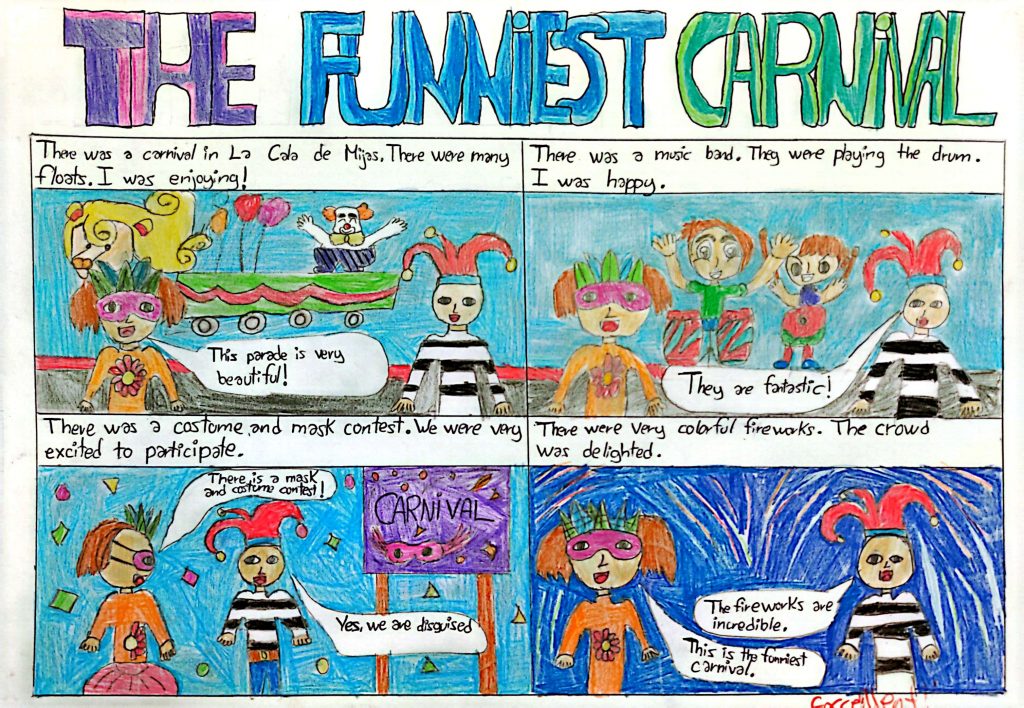 THE FUNNIEST CARNIVAL
There was a carnival in La Cala de Mijas. There were many
floats. I was enjoying!
This parade is very
beautiful!
There was a music band. They were playing the drum.
I was happy.
They are fantastic!
There was a costume and mask contest. We were very
excited to participate.
There is a mask
and costume contest!
CARNIVAL
Yes, we are disguised
There were very colorful fireworks. The crowd
was delighted.
The fireworks are
incredible.
This is the funniest
carnival.